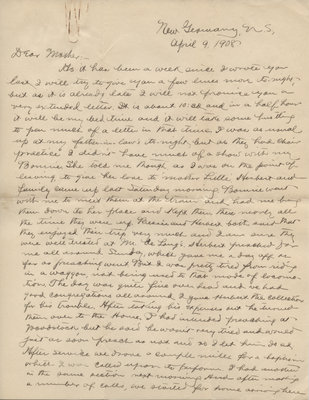 New Germany, N.S,
April 9, 1908.
Dear Mother,
As it has been a week since I wrote you
last I will try to give you a few lines more to-night
but as it is already late I will not promise you a
very extended letter. It is about 10.00 and in a half hour
it will be my bed time and it will take some
to pen much of a letter in that time. I was as usual
up at my father in law's to-night, but as they had their
practice I didn't have much of a show with my
Bonnie. She told me though as I was on the point of
leaving to give her love to mother Lillie Herbert and
family came up last Saturday morning Bonnie went
with me to meet them at the train and had me bring
them down to her place and kept them there nearly all
the time they were up. Bessie and Herbert both said that
they enjoyed their trip very much and I am sure they
were well treated at Mr. De Long's. Herbert preached for
me all around Sunday, which gave me a day off as
far as preaching went but I was pretty tired from riding
in a waggon not being used to that mode of locomo-
tion. The day was quite fine over head and we had
good congregations all around. I gave Herbert the collection
for his trouble, After taking his expenses out he turned
them over to the Home, I had intended preaching at
Woodstock but he said he wasn't very tired and would
just as soon preach as not and so I let him go ahead
After Service we drove a couple miles for a baptism
which I was called upon to perform I had another
in the same section next morning And after making
a number of calls, we started for home somewhere